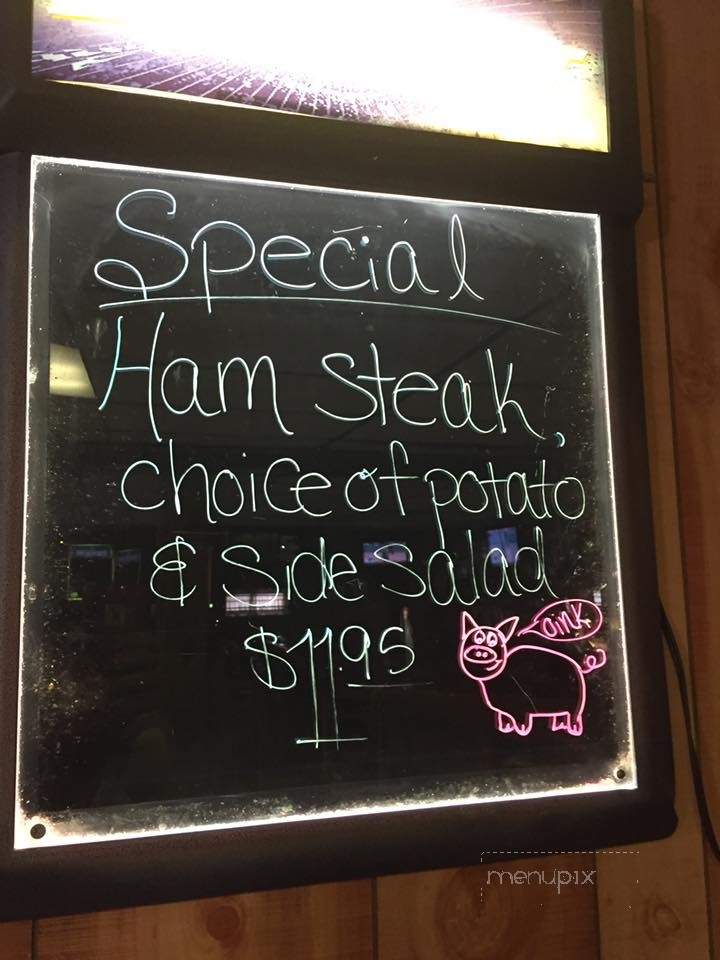 Special
Ham Steak,
choice of potato
& Side Salad
$11.95
oink
menupix